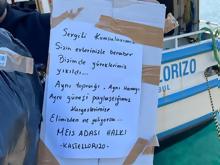 Sevgili Komşularımız
Sizin evlerinizle beraber
Bizimde yüreklerimiz
yıkıldı...
Aynı toprağı, Aynı Havayı
Aynı güneşi paylaştığımız
Kardeşlerimize
Elimizden ne geliyorsa...
MEİS ADASI HALKI
-KASTELLORIZO-
LORIZO